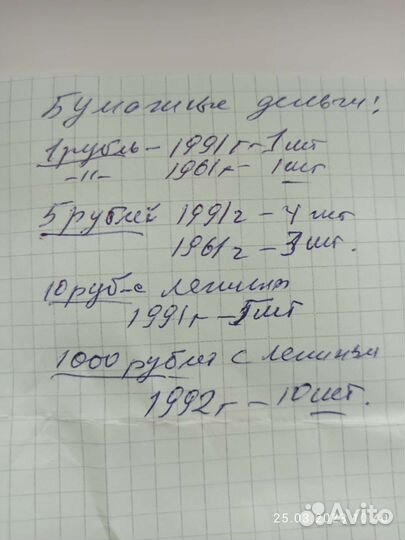 Бумажные деньги:
1 рубль - 1991 г - 1 шт
-"- 1961 г - 1 шт
5 рублей 1991 г - 4 шт
1961 г - 3 шт.
10 руб-с Лениным
1991 г - 1 шт
1000 рублей с Лениным
1992 г - 10 шт.
Avito